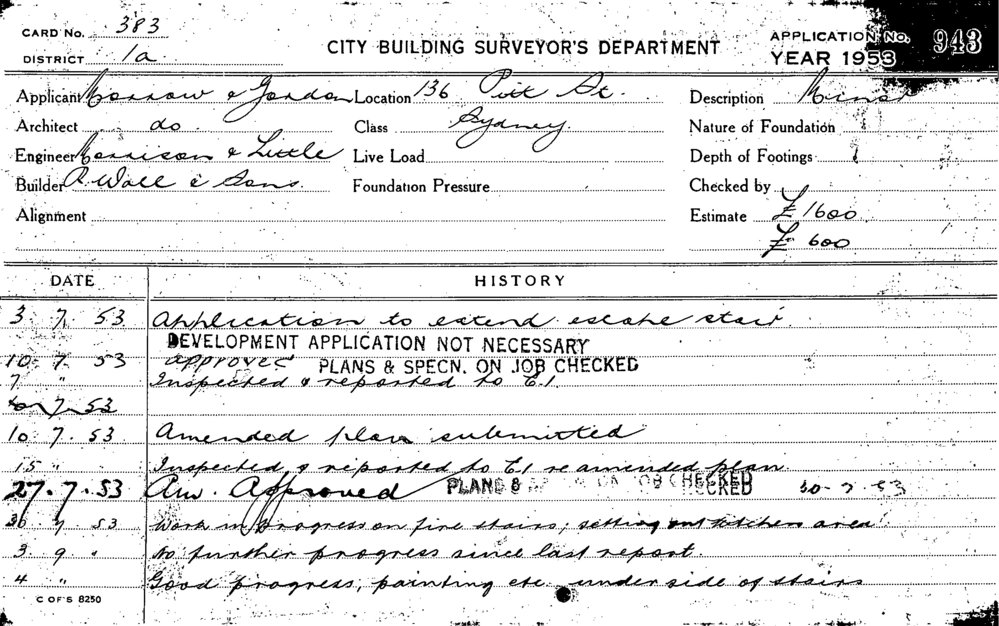 CARD No. 383
DISTRICT 1a
CITY BUILDING SURVEYOR'S DEPARTMENT
APPLICATION No. 943
YEAR 1953
Applicant Morrow & Gordon Location 136 Pitt St. Description Minor
Architect do Class Sydney. Nature of Foundation
Engineer Morrison & Little Live Load Depth of Footings
Builder R. Wall & Sons. Foundation Pressure Checked by
Alignment Estimate £ 1600
£ 600
DATE HISTORY
3. 7. 53 Application to extend escape stair.
DEVELOPMENT APPLICATION NOT NECESSARY
10. 7. 53 approved PLANS & SPECN. ON JOB CHECKED
7 " Inspected & reported to E.1.
7. 53
10. 7. 53 Amended plan submitted
15 " Inspected & reported to E.1 re amended plan.
27. 7. 53 Am. Approved PLANS & ON JOB CHECKED 30-7-53
30 7 53 Work in progress on fire stairs; setting out kitchen area
3. 9. " No further progress since last report.
4 " Good progress, painting etc under side of stairs
C OF S 8250